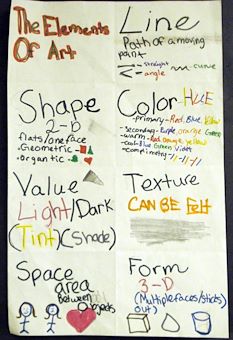 The Elements
Of Art
Line
Path of a moving
point
straight
angle
curve
Shape
2-D
flats/oneface
-Geometric
-Organtic
Color-HUE
-primary-Red, Blue, Yellow
-Secondary-Purple, orange, Green
-warm-Red, orange, yellow
-cool-Blue, Green, Violet
-complimetry
Value
Light/Dark
(Tint)(Shade)
Texture
CAN BE Felt
Space
area
Between
Objects
Form
3-D
(Multiple faces/sticks
out)